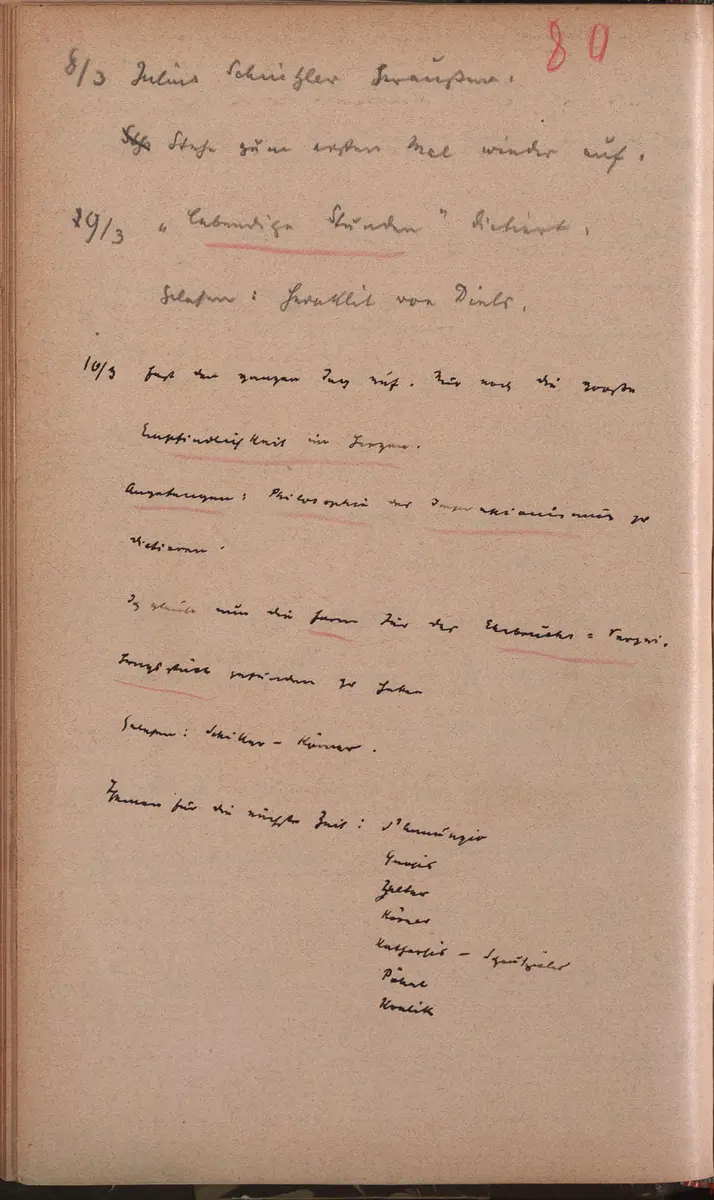 80
8/3 Julius Schnitzler heraußen.
Stehe zum ersten Mal wieder auf.
9/3 „Lebendige Stunden" dictiert.
Gelesen: Heraklit von Diels.
10/3 Fast den ganzen Tag auf. Nur noch die große
Empfindlichkeit im Herzen.
Angefangen: Philosophie des Impressionismus zu
dictieren.
Ich glaube nun die Form für das Ehebruchs =
gefunden zu haben
Gelesen: Schiller – Körner.
Themen für die nächste Zeit: d'Annunzio
Zelter
Körner
Katharsis – Schauspieler
Kralik